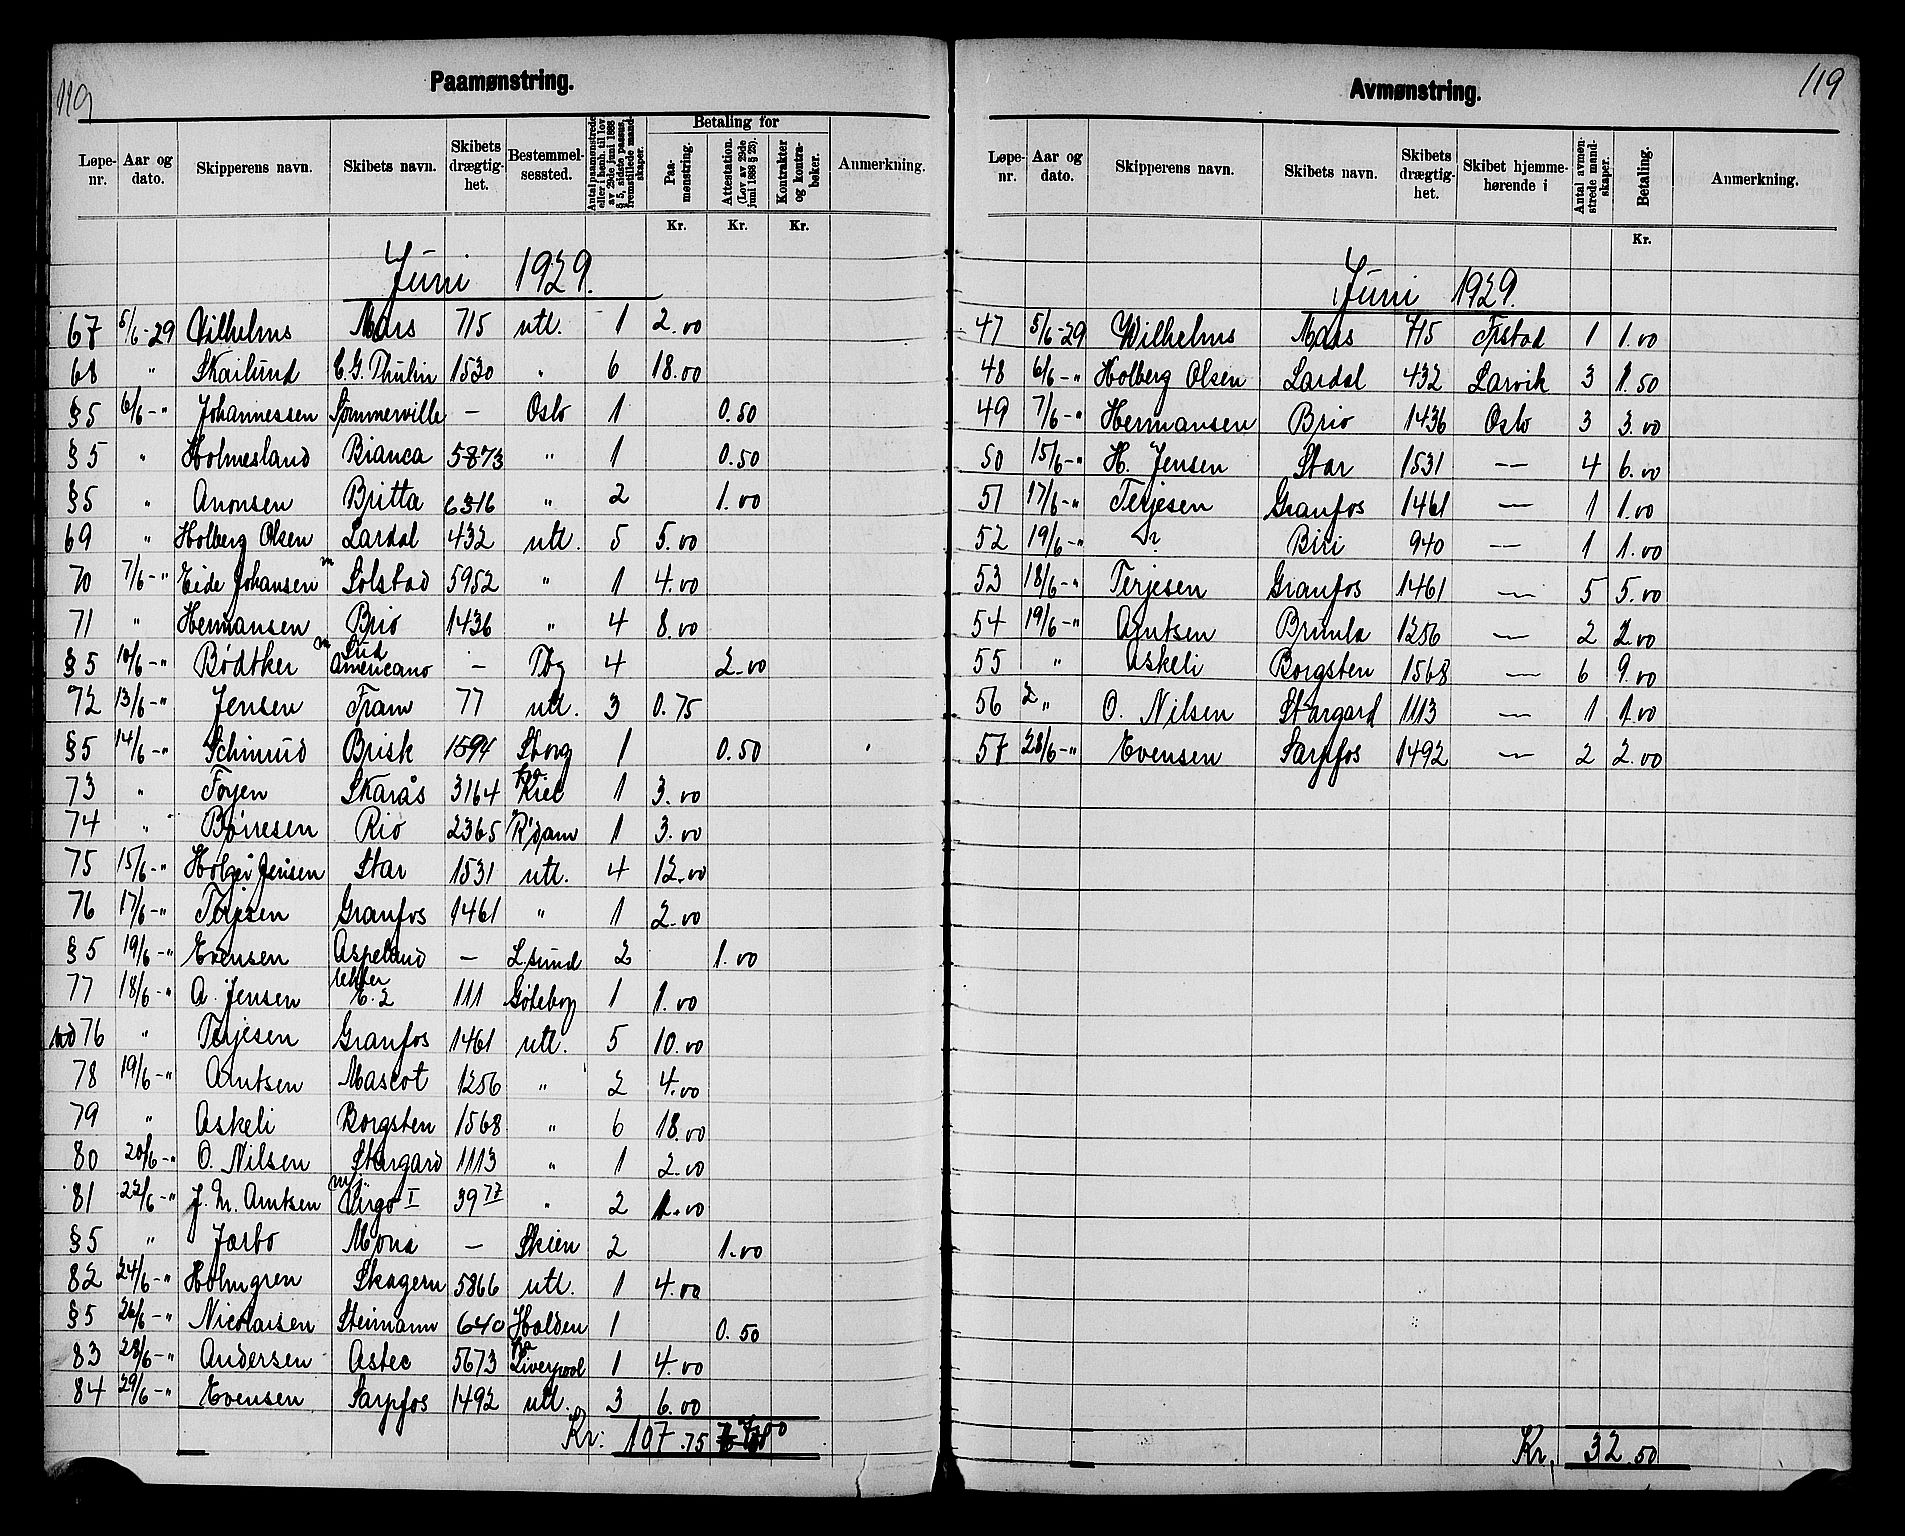 119
Paamønstring.
Løpe-nr. Aar og dato. Skipperens navn. Skibets navn. Skibets drægtighet. Bestemmelsessted. Antal paamønstrede eller i henh. til lov av 29de juni 1888 § 5, sidste passus, fremstillede mandskaper. Betaling for Anmerkning.
Paamønstring. Attestation. (Lov av 29de juni 1888 § 23). Kontrakter og kontrabøker.
Kr. Kr. Kr.
Juni 1929.
67 5/6-29 Vilhelms Mars 715 utl. 1 2.00
68 " Skarlund C.G. Thulin 1530 " 6 18.00
§5 6/6-" Johannessen Sommerville - Oslo 1 0.50
§5 " Holmesland Bianca 5873 " 1 0.50
§5 " Anonsen Britta 6316 " 2 1.00
69 " Holberg Olsen Lardal 432 utl. 5 5.00
70 7/6-" Eide Johansen m Solstad 5952 " 1 4.00
71 " Hermansen Brio 1436 " 4 8.00
§5 10/6-" Bødtker m Sud Americano - Tbg 4 2.00
72 13/6-" Jensen Fram 77 utl. 3 0.75
§5 14/6-" Schimud Brisk 1594 Sborg 1 0.50
73 " Foyen Skarås 3164 fra Kiel 1 3.00
74 " Børresen Rio 2365 R'dam 1 3.00
75 15/6-" Holger Jensen Star 1531 utl. 4 12.00
76 17/6-" Terjesen Granfos 1461 " 1 2.00
§5 19/6-" Evensen Aspelund - L.sund 2 1.00
77 18/6-" A. Jensen lekter E.2 111 Göteborg 1 1.00
ad 76 " Terjesen Granfos 1461 utl. 5 10.00
78 19/6-" Arntsen Mascot 1256 " 2 4.00
79 " Askeli Borgsten 1568 " 6 18.00
80 20/6-" O. Nilsen Stargard 1113 " 1 2.00
81 22/6-" J. M. Arntsen m/j. Virgo I 39 77 " 2 1.00
§5 " Jarbo Mona - Skien 2 1.00
82 24/6-" Holmgren Skagern 5866 utl. 1 4.00
§5 26/6-" Nicolaisen Steimann 640 Halden 1 0.50
83 28/6-" Andersen Astec 5673 fra Liverpool 1 4.00
84 29/6-" Evensen Sarpfos 1492 utl. 3 6.00
Kr: 107.75
119
Avmønstring.
Løpe-nr. Aar og dato. Skipperens navn. Skibets navn. Skibets drægtighet. Skibet hjemmehørende i Antal avmønstrede mandskaper. Betaling. Anmerkning.
Kr.
Juni 1929.
47 5/6-29 Wilhelms Mars 715 Fstad 1 1.00
48 6/6-" Holberg Olsen Lardal 432 Larvik 3 1.50
49 7/6-" Hermansen Brio 1436 Oslo 3 3.00
50 15/6-" H. Jensen Star 1531 — 4 6.00
51 17/6-" Terjesen Granfos 1461 — 1 1.00
52 19/6-" Biri 940 — 1 1.00
53 18/6-" Terjesen Granfos 1461 — 5 5.00
54 19/6-" Arntsen Brunla 1256 — 2 2.00
55 " Askeli Borgsten 1568 — 6 9.00
56 2 " O. Nilsen Stargard 1113 — 1 1.00
57 28/6-" Evensen Sarpfos 1492 — 2 2.00
Kr. 32.50